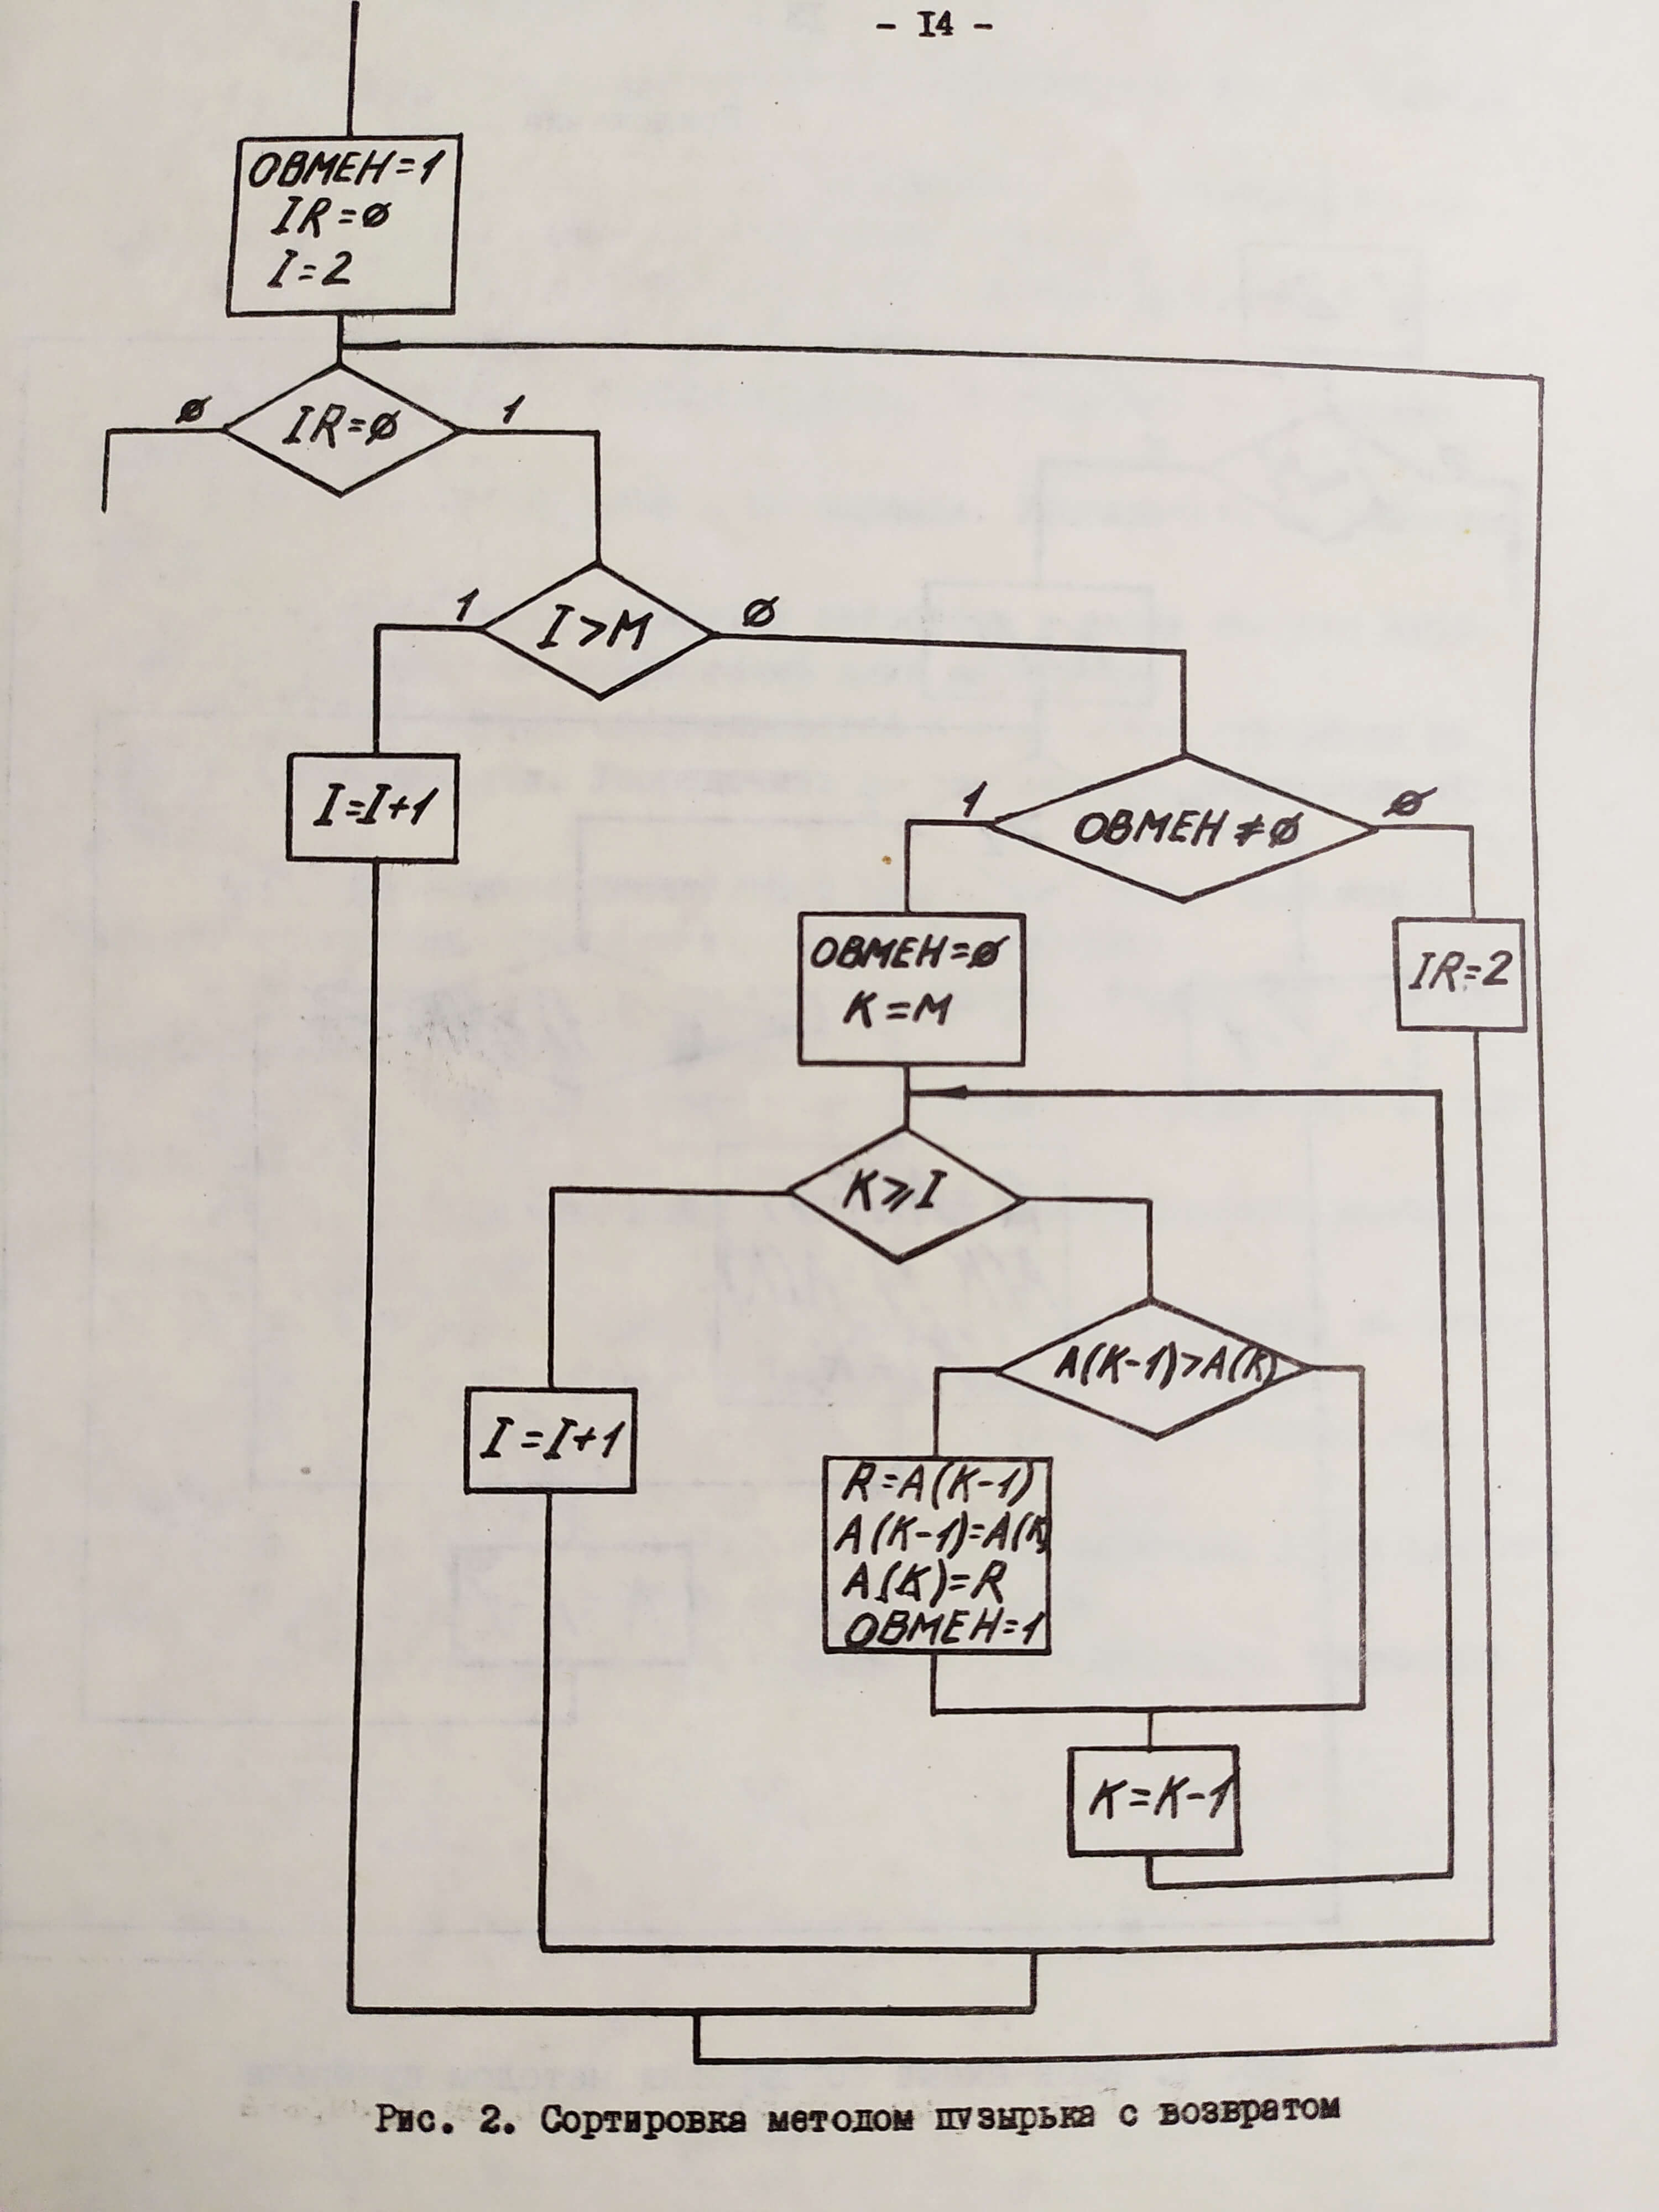 - I4 -
ОБМЕН=1
IR=ø
I=2
ø
IR=ø
1
1
I>M
ø
I=I+1
1
ОБМЕН≠ø
ø
ОБМЕН=ø
K=M
IR=2
K⩾I
A(K-1)>A(K)
I=I+1
R=A(K-1)
A(K-1)=A(K)
A(K)=R
ОБМЕН=1
K=K-1
Рис. 2. Сортировка методом пузырька с возвратом